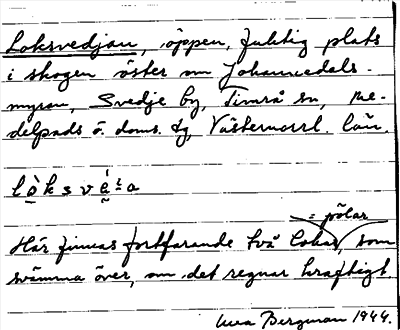 Loksvedjan, öppen, fuktig plats
i skogen öster om Johannedals-
myran, Svedje by, Timrå sn, Me-
delpads ö. doms. tg, Västernorrl. län.
lò̱ksvé̱ᵗa
= pölar
Här finnas fortfarande två lokar, som
svämma över, om det regnar kraftigt.
Bergman 1944.